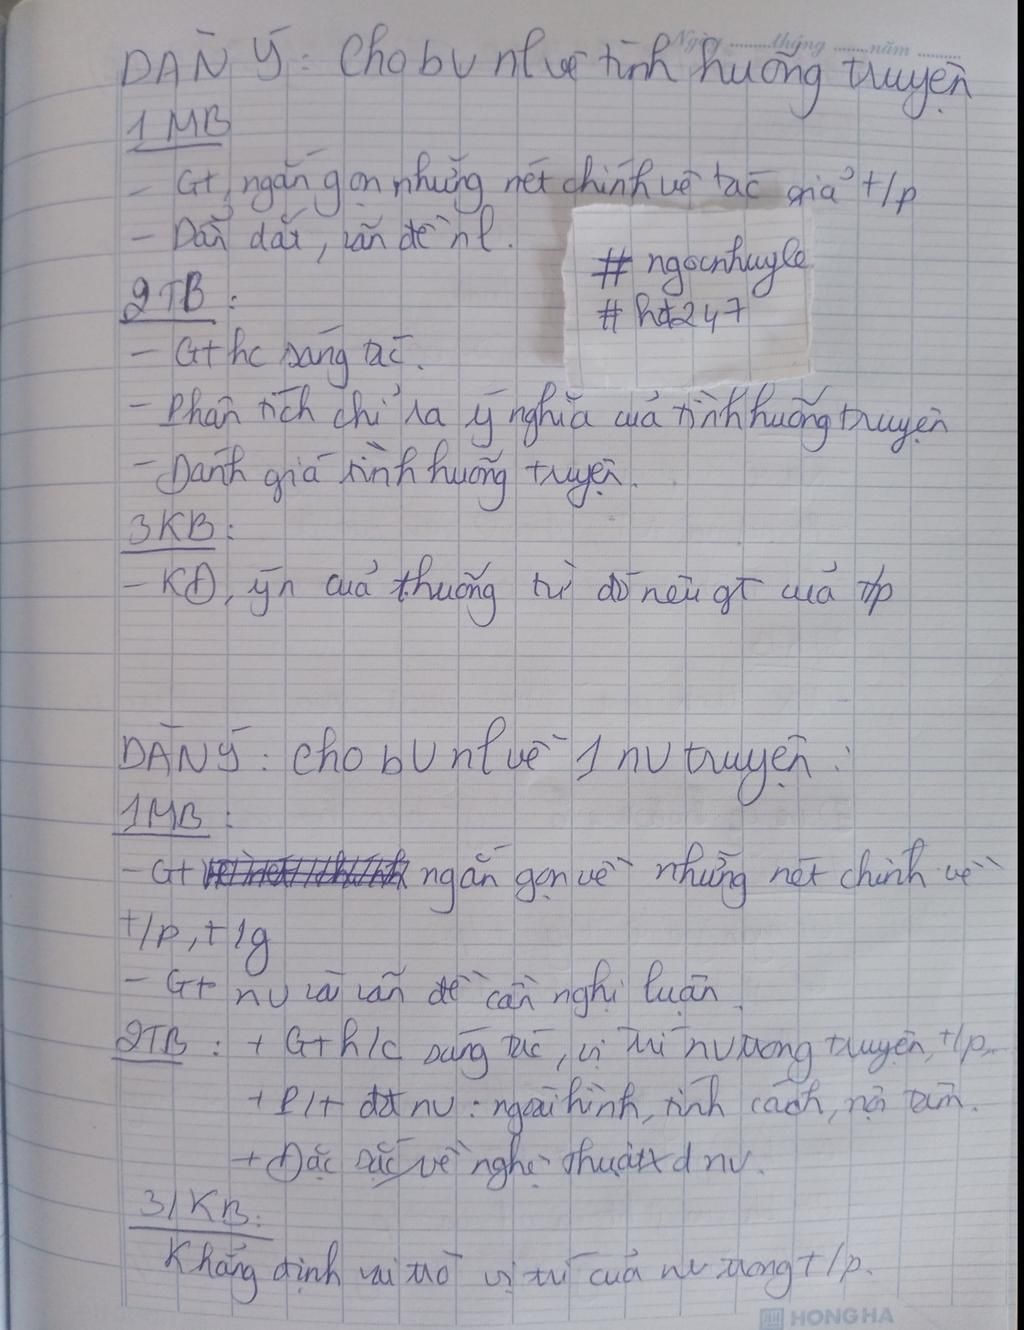 Ngày ........tháng ......năm ........
DÀN Ý: Cho bv nl về tình huống truyện
1 MB
- Gt, ngắn gọn những nét chính về tác giả t/p
- Dẫn dắt, vấn đề nl.
# ngocnhuyle
# hđ247
2TB:
- Gt hc sáng tác.
- Phân tích chỉ ra ý nghĩa của tình huống truyện
- Đánh giá tình huống truyện.
3KB:
- KĐ, ýn của thuống từ đó nêu gt của t/p
DÀN Ý: Cho bv nl về 1 nv truyện:
1MB:
- Gt ngắn gọn về những nét chính về
t/p, t/g
- Gt nv và vấn đề cần nghị luận.
2TB: + Gt h/c sáng tác, vị trí nv trong truyện, t/p.
+ P/t đđ nv: ngoại hình, tính cách, nội tâm.
+ Đặc sắc về nghệ thuật xd nv.
3/ KB:
Khẳng định vai trò vị trí của nv trong t/p.
HONG HA